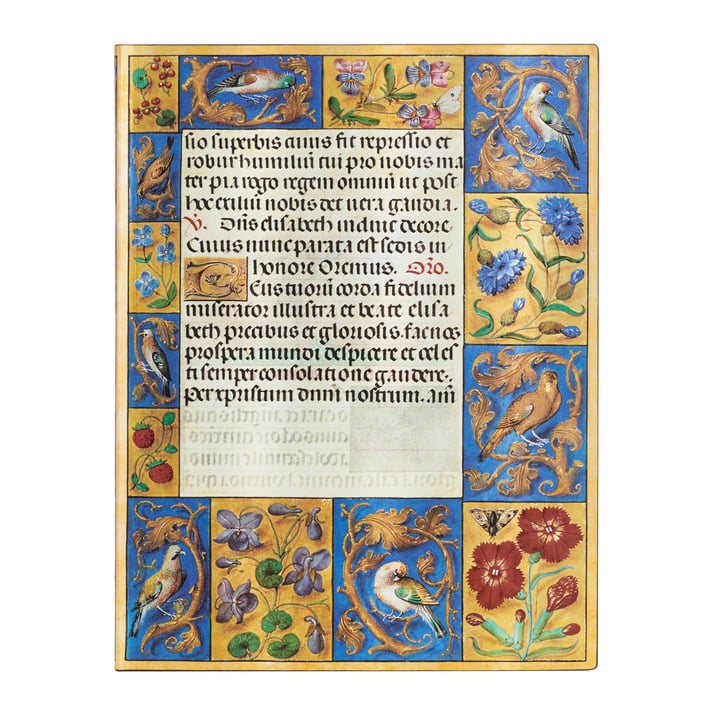 sio superbis cuius fit repressio et
robur humiliū cui pro nobis ma
ter pia rogo regem omniū ut post
hoc exiliū nobis det vera gaudia.
V. Diua elisabeth induit decore.
Cuius nunc parata est sedis in
honore Oremus. Oro.
Deus tuorū corda fidelium
miserator illustra et beate elisa
beth precibus et gloriosis. fac nos
prospera mundi despicere et celes
ti semper consolatione gaudere.
Per xpristum dnm̄ nostrum. am̄